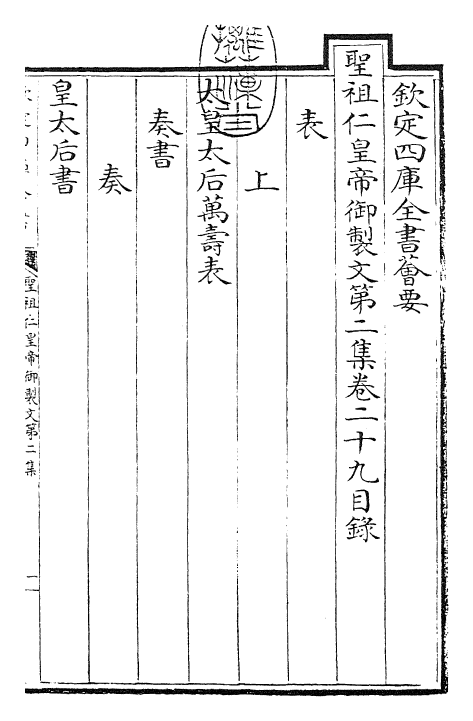 欽定四庫全書薈要
聖祖仁皇帝御製文第二集卷二十九目錄
表
上
太皇太后萬壽表
奏書
奏
皇太后書
聖祖仁皇帝御製文第二集
一